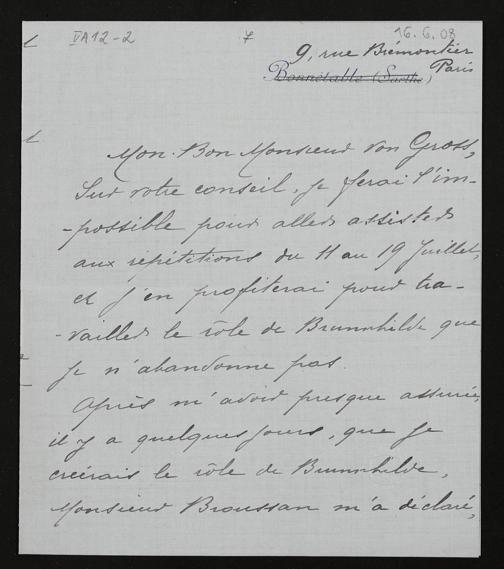 VA12-2 7 16.6.08
9, rue Brémontier
Bonnétable (Sarthe) Paris
Mon Bon Monsieur von Gross,
Sur votre conseil, je ferai l'im-
-possible pour aller assister
aux répétitions du 11 au 19 Juillet,
et j'en profiterai pour tra-
-vailler le rôle de Brunnhilde que
je n'abandonne pas.
Après m'avoir presque assurée,
il y a quelques jours, que je
créerais le rôle de Brunnhilde,
Monsieur Broussan m'a déclaré,